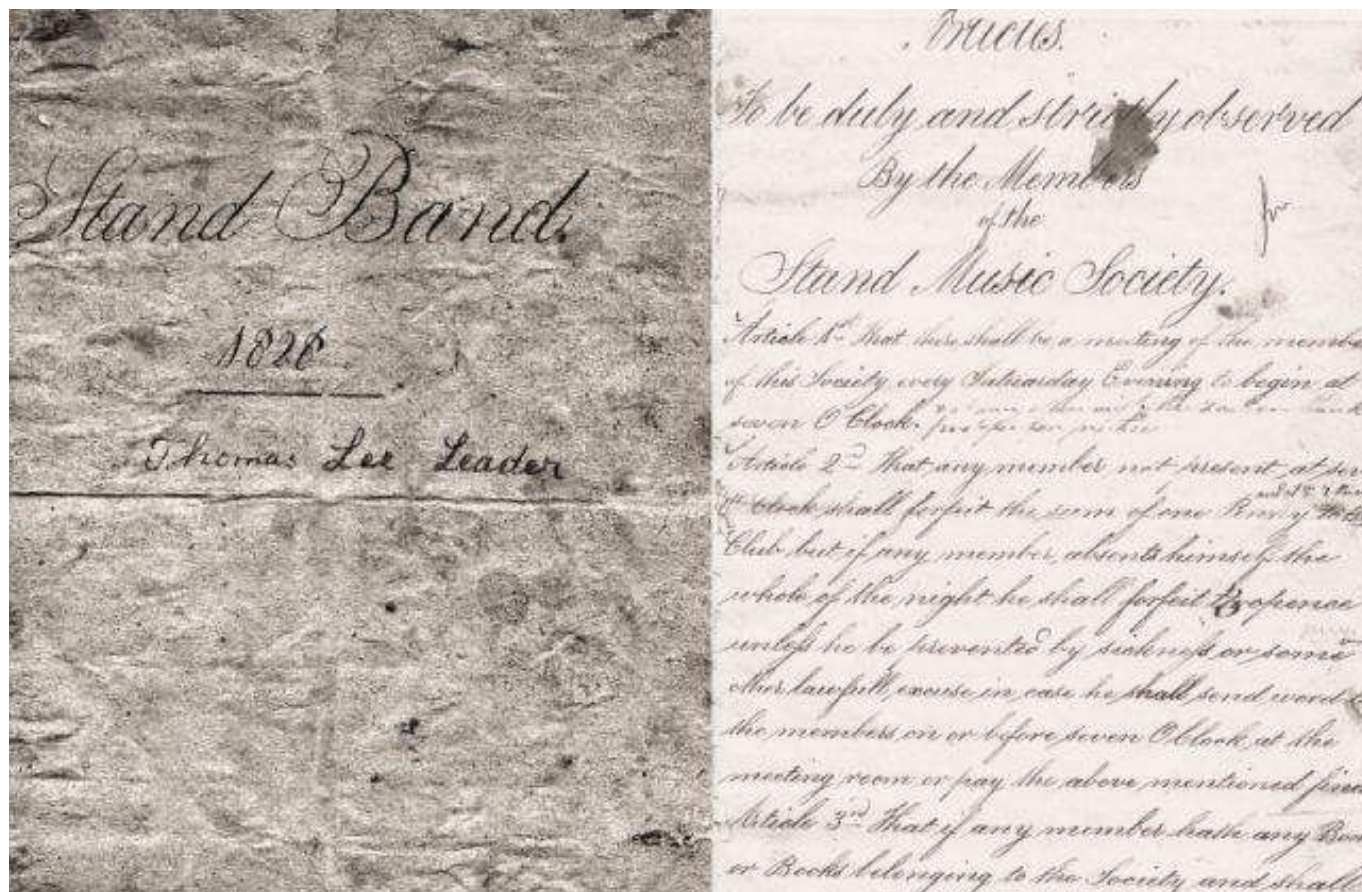 Stand Band.
1828
Thomas Lee Leader
Articles.
To be duly and strictly observed
By the Members
of the
Stand Music Society.
Article 1st That there shall be a meeting of the membe
of this Society every Saturday Evening to begin at
seven O'Clock.
Article 2nd That any member not present at sev
O'Clock shall forfeit the sum of one Penny
Club but if any member, absents himself the
whole of the night he shall forfeit Twopence
unless he be prevented by sickness or some
other lawfull excuse in case he shall send word
the members on or before seven O'Clock at the
meeting room or pay the above mentioned fine
Article 3rd That if any member hath any Boo
or Books belonging to the Society and shall